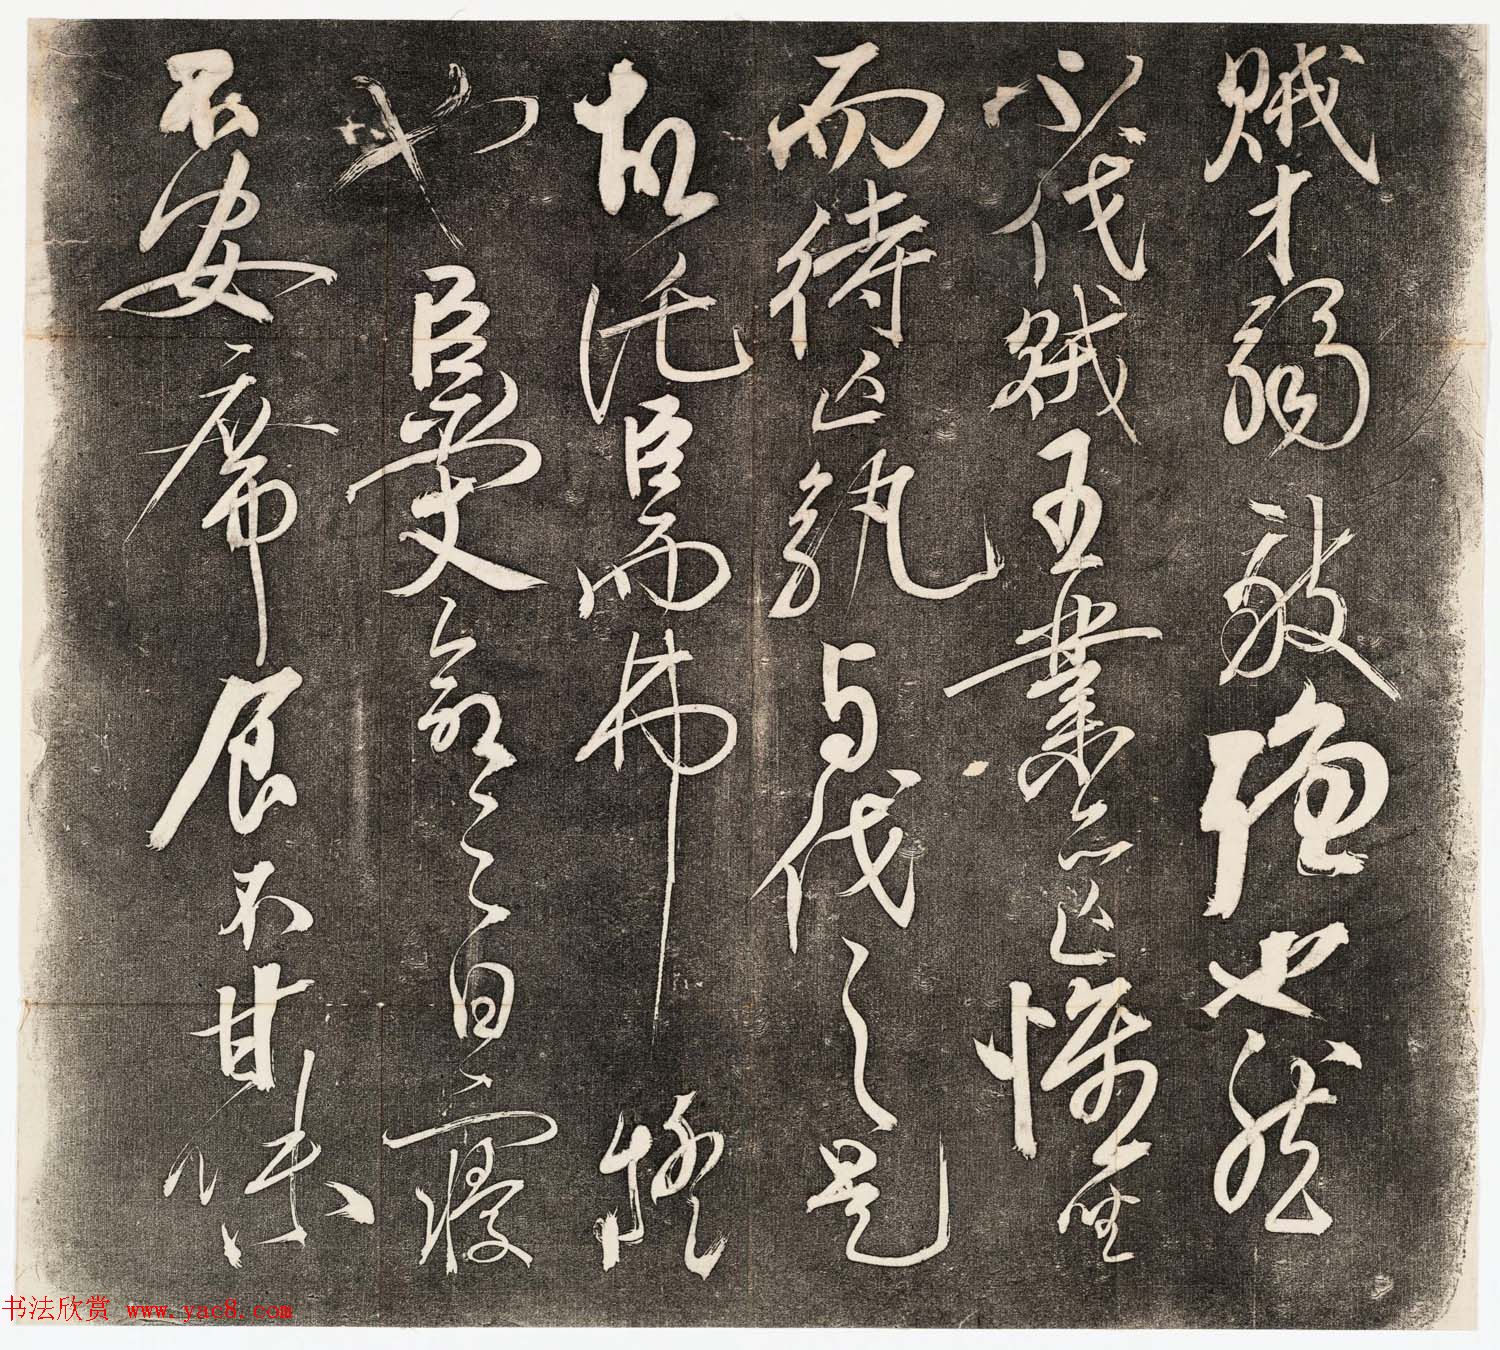 賊才弱敵強也然
不伐賊王業亦亡惟坐
而待亡孰與伐之是
故託臣而弗疑
也臣受命之日寢
不安席食不甘味
书法欣赏 www.yac8.com